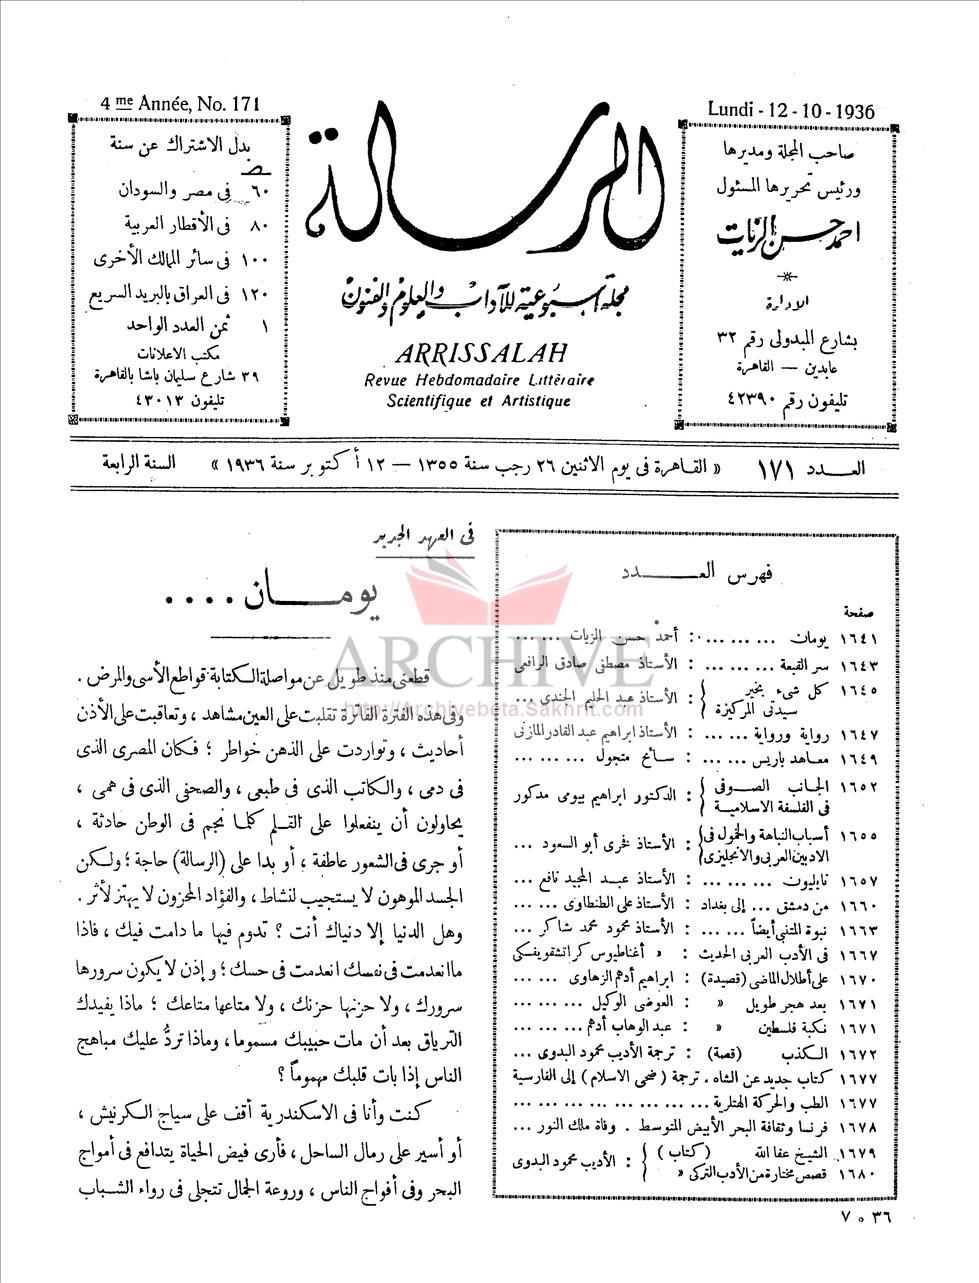 4me Année, No. 171
بدل الاشتراك عن سنة
٦٠ فى مصر والسودان
٨٠ فى الأقطار العربية
١٠٠ فى سائر الممالك الأخرى
١٢٠ فى العراق بالبريد السريع
١ ثمن العدد الواحد
مكتب الاعلانات
٣٩ شارع سليمان باشا بالقاهرة
تليفون ٤٣٠١٣
الرسالة
مجلة أسبوعية للآداب والعلوم والفنون
ARRISSALAH
Revue Hebdomadaire Littéraire
Scientifique et Artistique
Lundi - 12 - 10 - 1936
صاحب المجلة ومديرها
ورئيس تحريرها المسئول
احمد حسن الزيات
الادارة
بشارع المبدولى رقم ٣٢
عابدين — القاهرة
تليفون رقم ٤٢٣٩٠
العـــدد ١٧١ « القاهرة فى يوم الاثنين ٢٦ رجب سنة ١٣٥٥ — ١٢ أكتوبر سنة ١٩٣٦ » السنة الرابعة
فهرس العـــدد
صفحة
١٦٤١ يومان ... ... ... : أحمد حسن الزيات ... ...
١٦٤٣ سر القبعة ... ... ... : الأستاذ مصطفى صادق الرافعى
١٦٤٥ كل شىء بخير سيدتى المركيزة } : الأستاذ عبد الحليم الجندى ...
١٦٤٧ رواية ورواية ... ... : الأستاذ ابراهيم عبد القادر المازنى
١٦٤٩ معاهد باريس ... ... : سائح متجول ... ... ...
١٦٥٢ الجانب الصوفى فى الفلسفة الاسلامية } : الدكتور ابراهيم بيومى مدكور
١٦٥٥ أسباب النباهة والخمول فى الادبين العربى والانجليزى } : الأستاذ فخرى أبو السعود ...
١٦٥٧ نابليون ... ... ... : الأستاذ عبد المجيد نافع ...
١٦٦٠ من دمشق ... إلى بغداد : الأستاذ على الطنطاوى ... ...
١٦٦٣ نبوة المتنبى أيضاً ... ... : الأستاذ محمود محمد شاكر ...
١٦٦٧ فى الأدب العربى الحديث : « أغناطيوس كراتشقويفسكى
١٦٧٠ على أطلال الماضى (قصيدة) : ابراهيم أدهم الزهاوى ... ...
١٦٧١ بعد هجر طويل « : العوضى الوكيل ... ... ...
١٦٧١ نكبة فلسطين « : عبد الوهاب أدهم ... ... ...
١٦٧٢ الكذب (قصة) : ترجمة الأديب محمود البدوى ...
١٦٧٧ كتاب جديد عن الشاه . ترجمة (ضحى الاسلام) إلى الفارسية
١٦٧٧ الطب والحركة الهتلرية ... ... ... ... ... ... ...
١٦٧٨ فرنسا وثقافة البحر الأبيض المتوسط . وفاة ملك النور ...
١٦٧٩ الشيخ عفا الله (كتاب) } : الأديب محمود البدوى
١٦٨٠ قصص مختارة من الأدب التركى «
٣٦ ٥ ٧
فى العهد الجديد
يومـــان ....
قطعنى منذ طويل عن مواصلة الكتابة قواطع الأسى والمرض .
وفى هذه الفترة الفاترة تقلبت على العين مشاهد ، وتعاقبت على الأذن
أحاديث ، وتواردت على الذهن خواطر ؛ فكان المصرى الذى
فى دمى ، والكاتب الذى فى طبعى ، والصحفى الذى فى همى ،
يحاولون أن ينفعلوا على القلم كلما نجم فى الوطن حادثة ،
أو جرى فى الشعور عاطفة ، أو بدا على (الرسالة) حاجة ؛ ولكن
الجسد الموهون لا يستجيب لنشاط ، والفؤاد المحزون لا يهتز لأثر .
وهل الدنيا إلا دنياك أنت ؟ تدوم فيها ما دامت فيك ، فاذا
ما انعدمت فى نفسك انعدمت فى حسك ؛ وإذن لا يكون سرورها
سرورك ، ولا حزنها حزنك ، ولا متاعها متاعك ؛ ماذا يفيدك
الترياق بعد أن مات حبيبك مسموما ، وماذا تردُّ عليك مباهج
الناس إذا بات قلبك مهموماً ؟
كنت وأنا فى الاسكندرية أقف على سياج الكرنيش ،
أو أسير على رمال الساحل ، فأرى فيض الحياة يتدافع فى أمواج
البحر وفى أفواج الناس ، وروعة الجمال تتجلى فى رواء الشباب
ARCHIVE
http://Archivebeta.Sakhrit.com